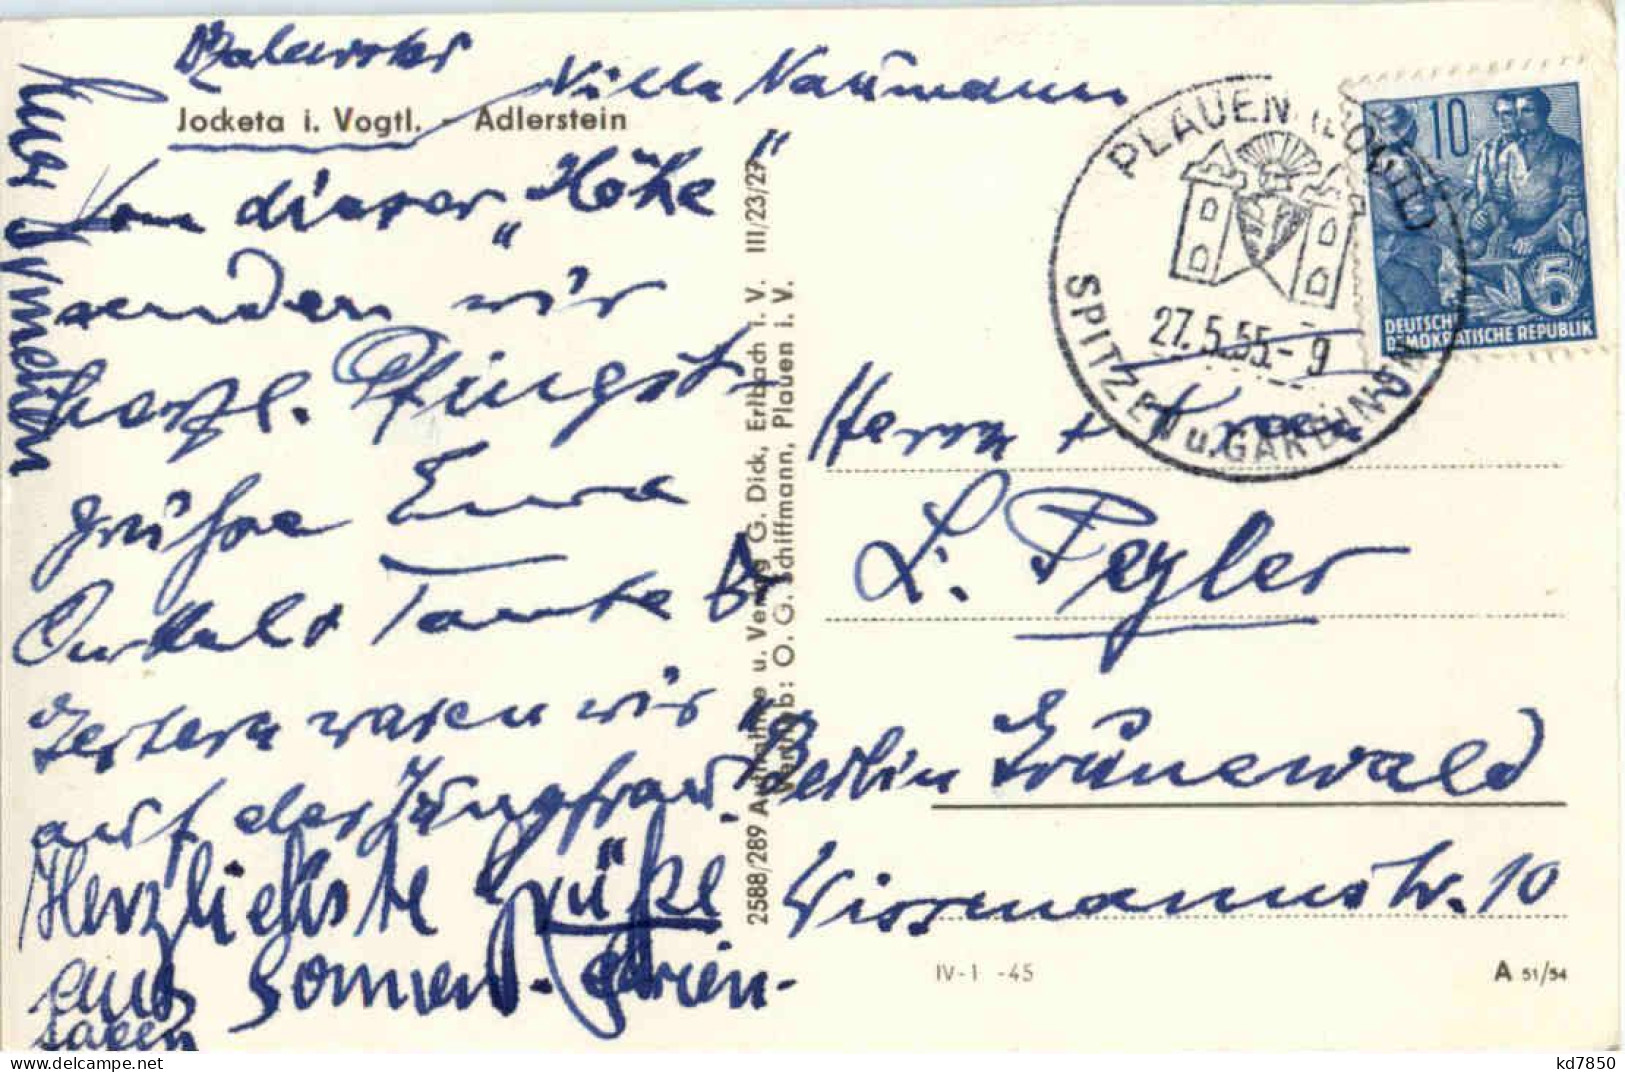 Villa Naumann
Jocketa i. Vogtl. - Adlerstein
Von dieser „Höhe"
senden wir
herzl. Pfingst-
grüße Eure
Onkel + Tante
Gestern waren wir
auf der Jungfrau.
Herzlichste Grüße
aus Sonnen-Ferien-
tagen
2588/289 Aufnahme u. Verlag G. Dick, Erlbach i. V. III/23/27
Vertrieb: O. G. Schiffmann, Plauen i. V.
PLAUEN (VOGTL)
27.5.55.-9
SPITZEN u. GARDINEN
10
5
DEUTSCHE
DEMOKRATISCHE REPUBLIK
Herrn +
L. Pegler
Berlin Grunewald
Wissmannstr. 10
IV-1 -45
A 51/54
kd7850